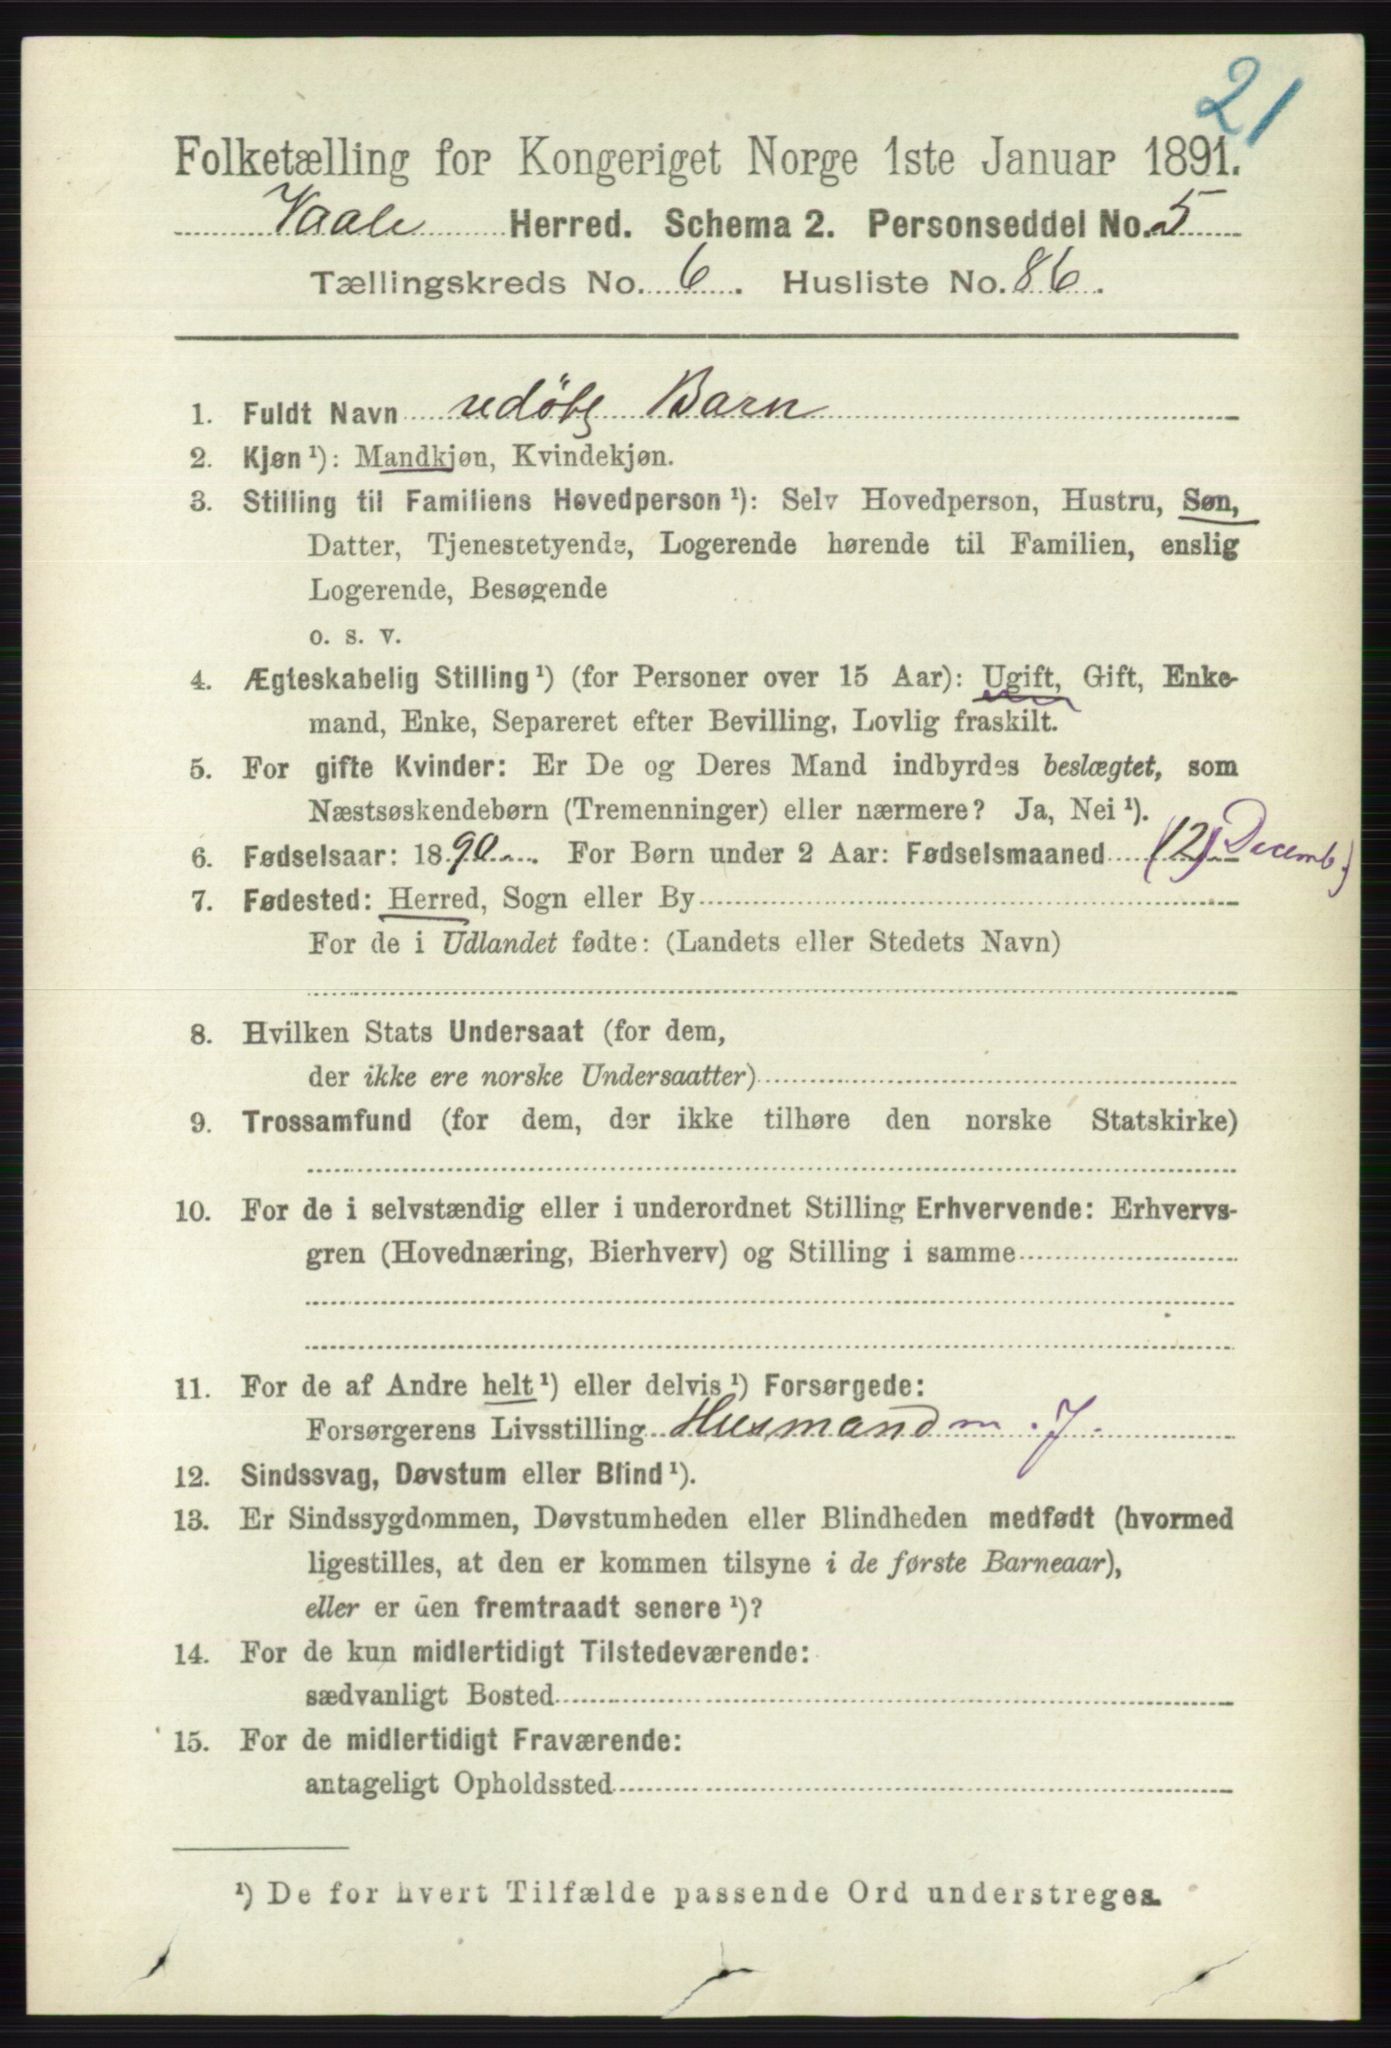 21
Folketælling for Kongeriget Norge 1ste Januar 1891.
Vaale Herred. Schema 2. Personseddel No. 5
Tællingskreds No. 6. Husliste No. 86.
1. Fuldt Navn udøbt Barn
2. Kjøn ¹): Mandkjøn, Kvindekjøn.
3. Stilling til Familiens Hovedperson ¹): Selv Hovedperson, Hustru, Søn,
Datter, Tjenestetyende, Logerende hørende til Familien, enslig
Logerende, Besøgende
o. s. v.
4. Ægteskabelig Stilling ¹) (for Personer over 15 Aar): Ugift, Gift, Enke-
mand, Enke, Separeret efter Bevilling, Lovlig fraskilt.
5. For gifte Kvinder: Er De og Deres Mand indbyrdes beslægtet, som
Næstsøskendebørn (Tremenninger) eller nærmere? Ja, Nei ¹).
6. Fødselsaar: 1890. For Børn under 2 Aar: Fødselsmaaned (12) Decemb.
7. Fødested: Herred, Sogn eller By
For de i Udlandet fødte: (Landets eller Stedets Navn)
8. Hvilken Stats Undersaat (for dem,
der ikke ere norske Undersaatter)
9. Trossamfund (for dem, der ikke tilhøre den norske Statskirke)
10. For de i selvstændig eller i underordnet Stilling Erhvervende: Erhvervs-
gren (Hovednæring, Bierhverv) og Stilling i samme
11. For de af Andre helt ¹) eller delvis ¹) Forsørgede:
Forsørgerens Livsstilling Husmand m. J.
12. Sindssvag, Døvstum eller Blind ¹).
13. Er Sindssygdommen, Døvstumheden eller Blindheden medfødt (hvormed
ligestilles, at den er kommen tilsyne i de første Barneaar),
eller er den fremtraadt senere ¹)?
14. For de kun midlertidigt Tilstedeværende:
sædvanligt Bosted
15. For de midlertidigt Fraværende:
antageligt Opholdssted
¹) De for hvert Tilfælde passende Ord understreges.